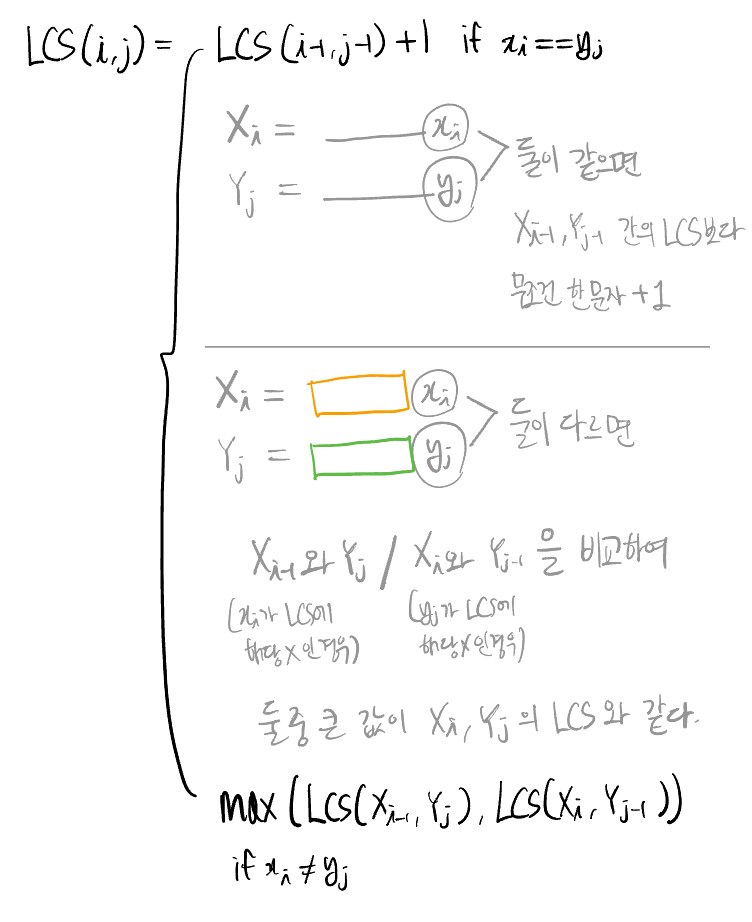 LCS(i,j) = LCS(i-1,j-1)+1 if xᵢ==yⱼ
Xᵢ = xᵢ
Yⱼ = yⱼ
둘이 같으면
Xᵢ₋₁, Yⱼ₋₁ 간의 LCS보다
무조건 한문자 +1
Xᵢ = xᵢ
Yⱼ = yⱼ
둘이 다르면
Xᵢ₋₁와 Yⱼ / Xᵢ와 Yⱼ₋₁ 을 비교하여
(xᵢ가 LCS에
해당X인경우)
(yⱼ가 LCS에
해당X인경우)
둘중 큰 값이 Xᵢ, Yⱼ의 LCS와 같다.
max(LCS(Xᵢ₋₁, Yⱼ), LCS(Xᵢ, Yⱼ₋₁))
if xᵢ≠yⱼ